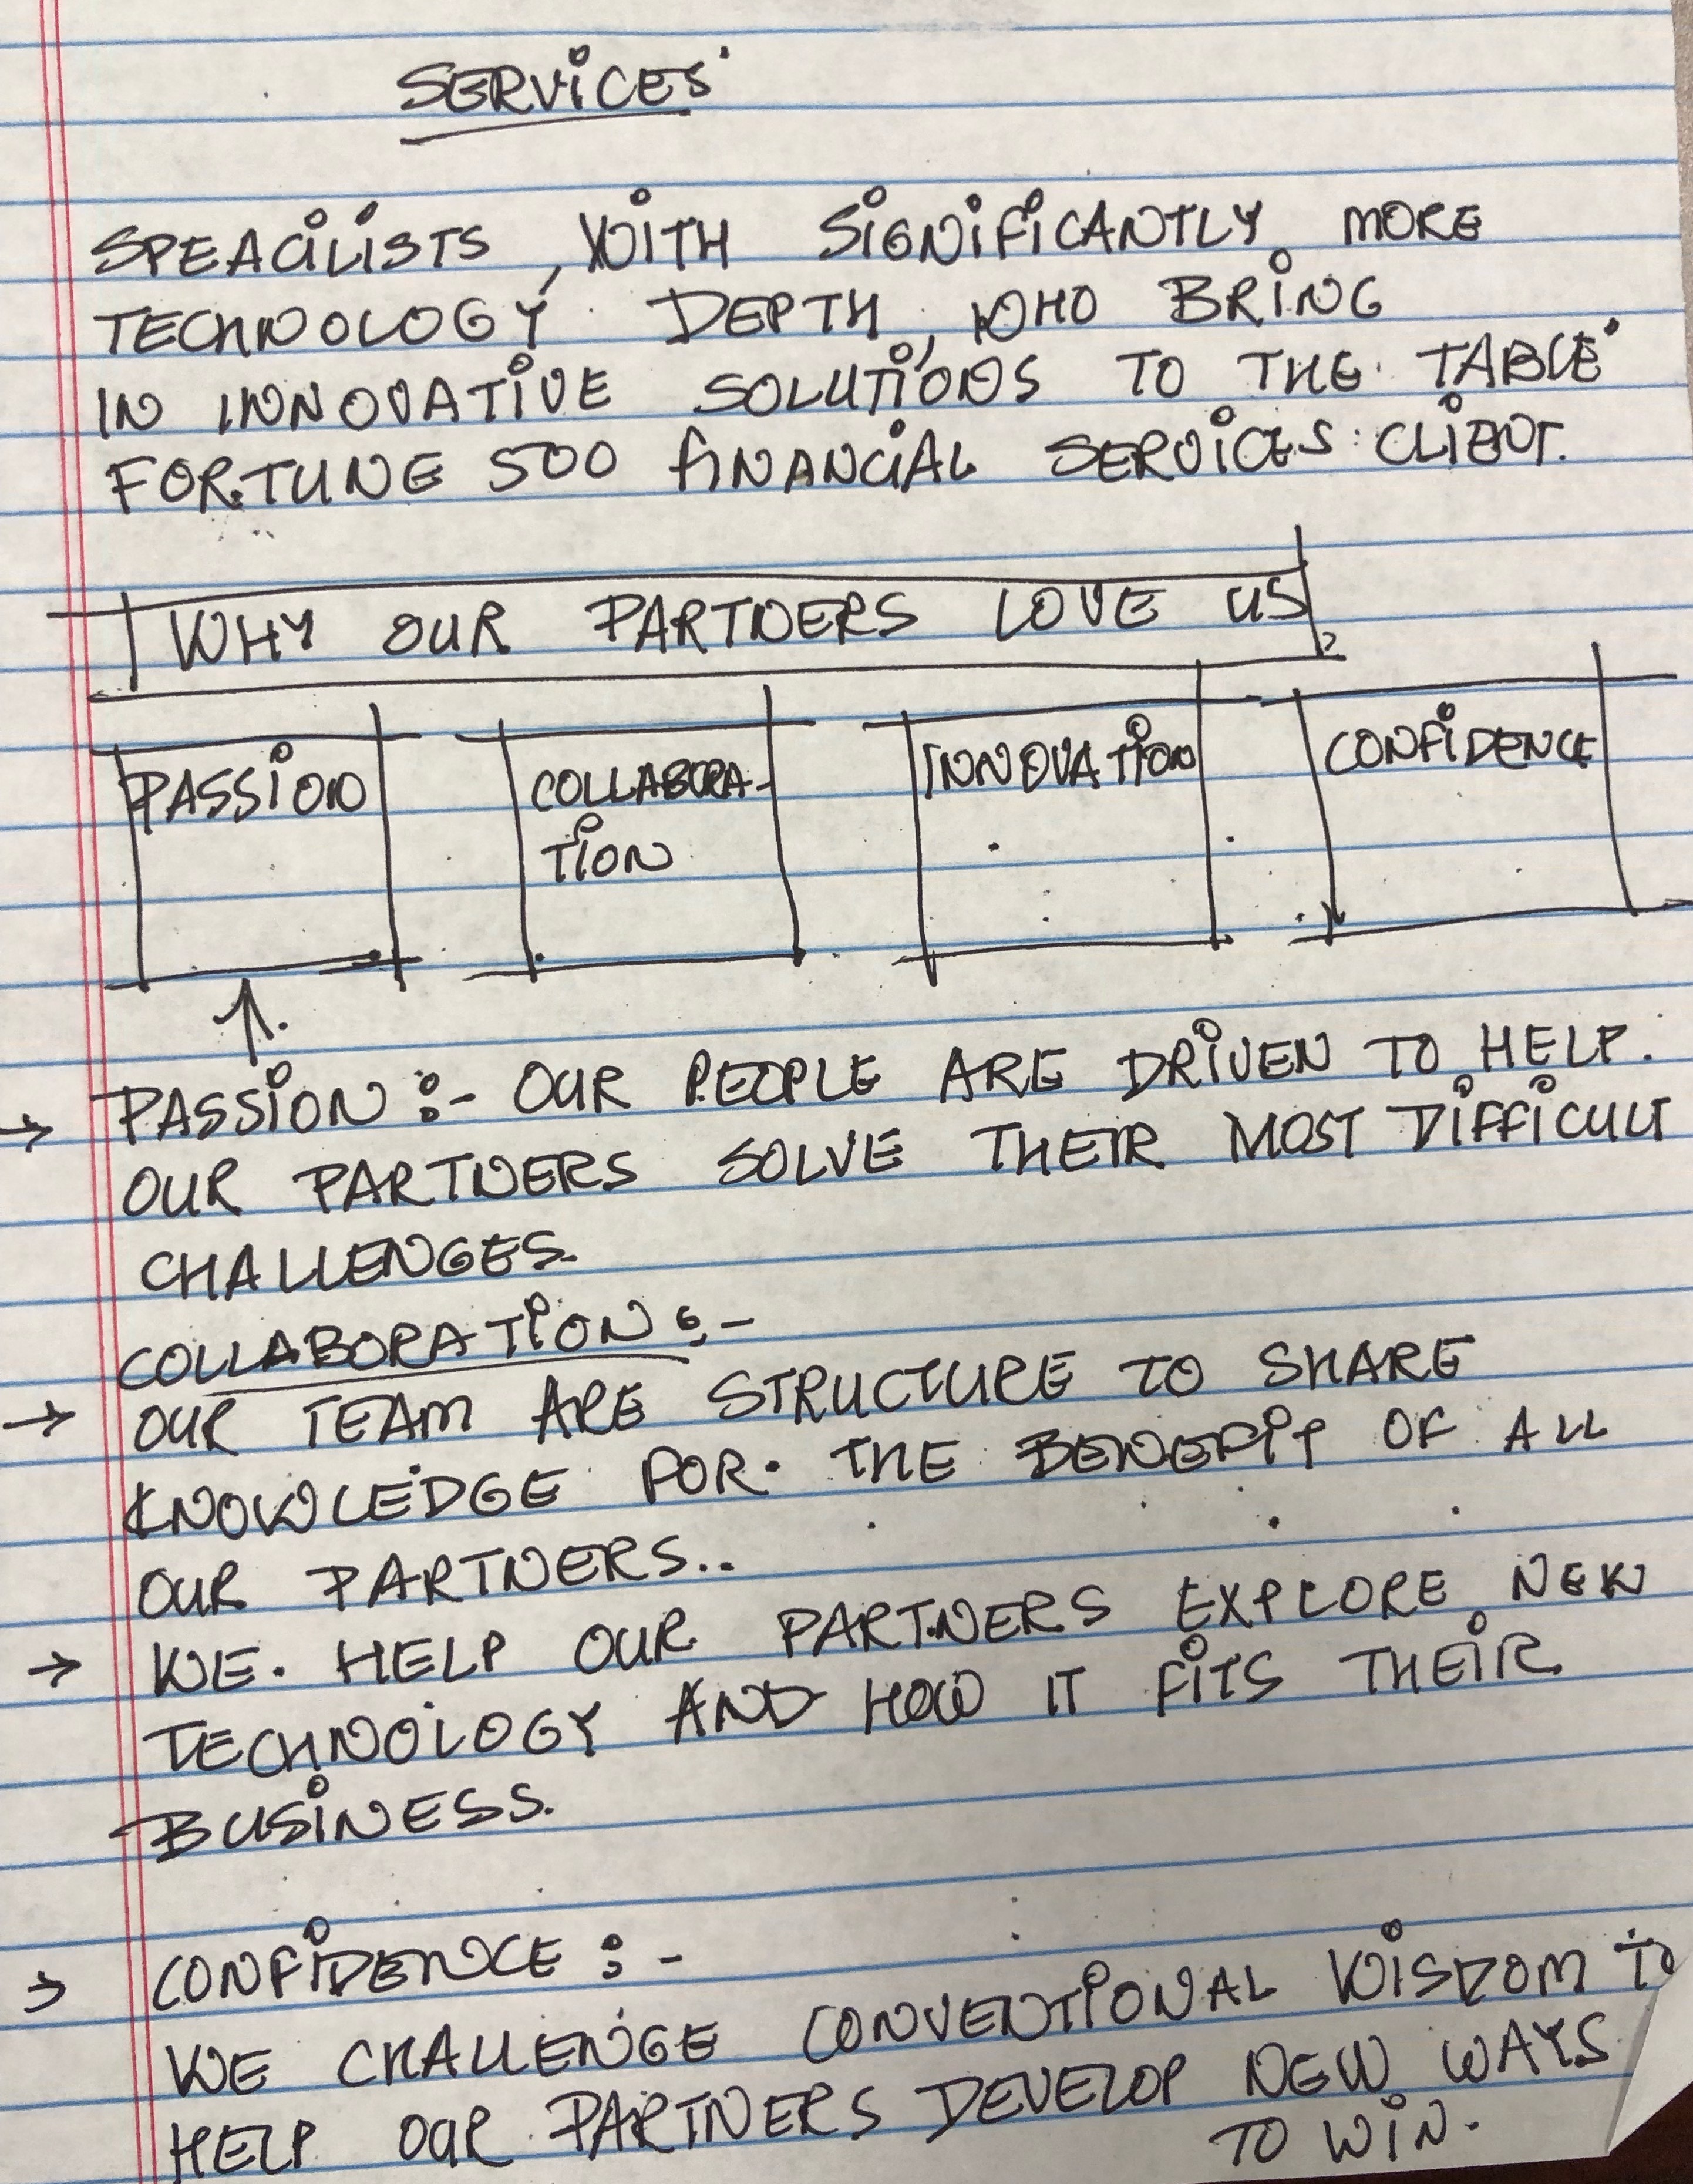 SERVICES
SPEACILISTS, WITH SIGNIFICANTLY MORE
TECHNOLOGY DEPTH, WHO BRING
IN INNOVATIVE SOLUTIONS TO THE TABLE
FORTUNE 500 FINANCIAL SERVICES CLIENT.
WHY OUR PARTNERS LOVE US
PASSION
COLLABORA-
TION
INNOVATION
CONFIDENCE
→ PASSION :- OUR PEOPLE ARE DRIVEN TO HELP.
OUR PARTNERS SOLVE THEIR MOST DIFFICULT
CHALLENGES.
COLLABORATION :-
→ OUR TEAM ARE STRUCTURE TO SHARE
KNOWLEDGE FOR THE BENEFIT OF ALL
OUR PARTNERS..
→ WE. HELP OUR PARTNERS EXPLORE NEW
TECHNOLOGY AND HOW IT FITS THEIR
BUSINESS.
→ CONFIDENCE :-
WE CHALLENGE CONVENTIONAL WISDOM TO
HELP OUR PARTNERS DEVELOP NEW WAYS
TO WIN.